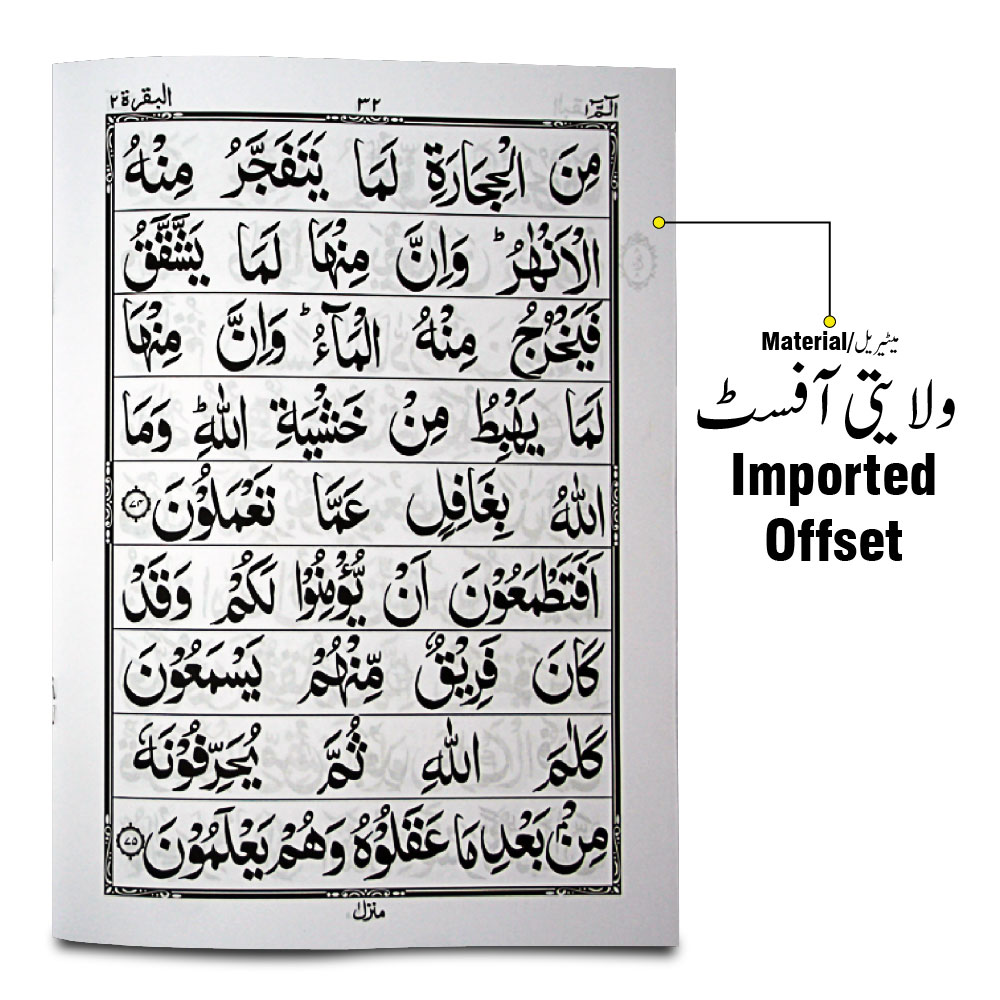 الٓمّٓ ۱
۳۲
البقرة ۲
مِنَ الْحِجَارَةِ لَمَا يَتَفَجَّرُ مِنْهُ
الْاَنْهٰرُ ؕ وَاِنَّ مِنْهَا لَمَا يَشَّقَّقُ
فَيَخْرُجُ مِنْهُ الْمَآءُ ؕ وَاِنَّ مِنْهَا
لَمَا يَهْبِطُ مِنْ خَشْيَةِ اللّٰهِ ؕ وَمَا
اللّٰهُ بِغَافِلٍ عَمَّا تَعْمَلُوْنَ ﴿۷۴﴾
اَفَتَطْمَعُوْنَ اَنْ يُّؤْمِنُوْا لَكُمْ وَقَدْ
كَانَ فَرِيْقٌ مِّنْهُمْ يَسْمَعُوْنَ
كَلٰمَ اللّٰهِ ثُمَّ يُحَرِّفُوْنَهٗ
مِنْۢ بَعْدِ مَا عَقَلُوْهُ وَهُمْ يَعْلَمُوْنَ ﴿۷۵﴾
منزل ۱
Material/میٹیریل
ولایتی آفسٹ
Imported
Offset